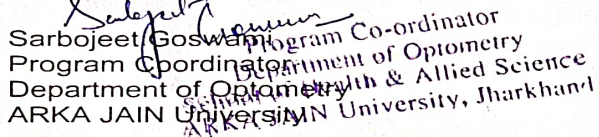 Sarbojeet Goswami
Program Coordinator
Department of Optometry
ARKA JAIN University
Program Co-ordinator
Department of Optometry
School of Health & Allied Science
ARKA JAIN University, Jharkhand